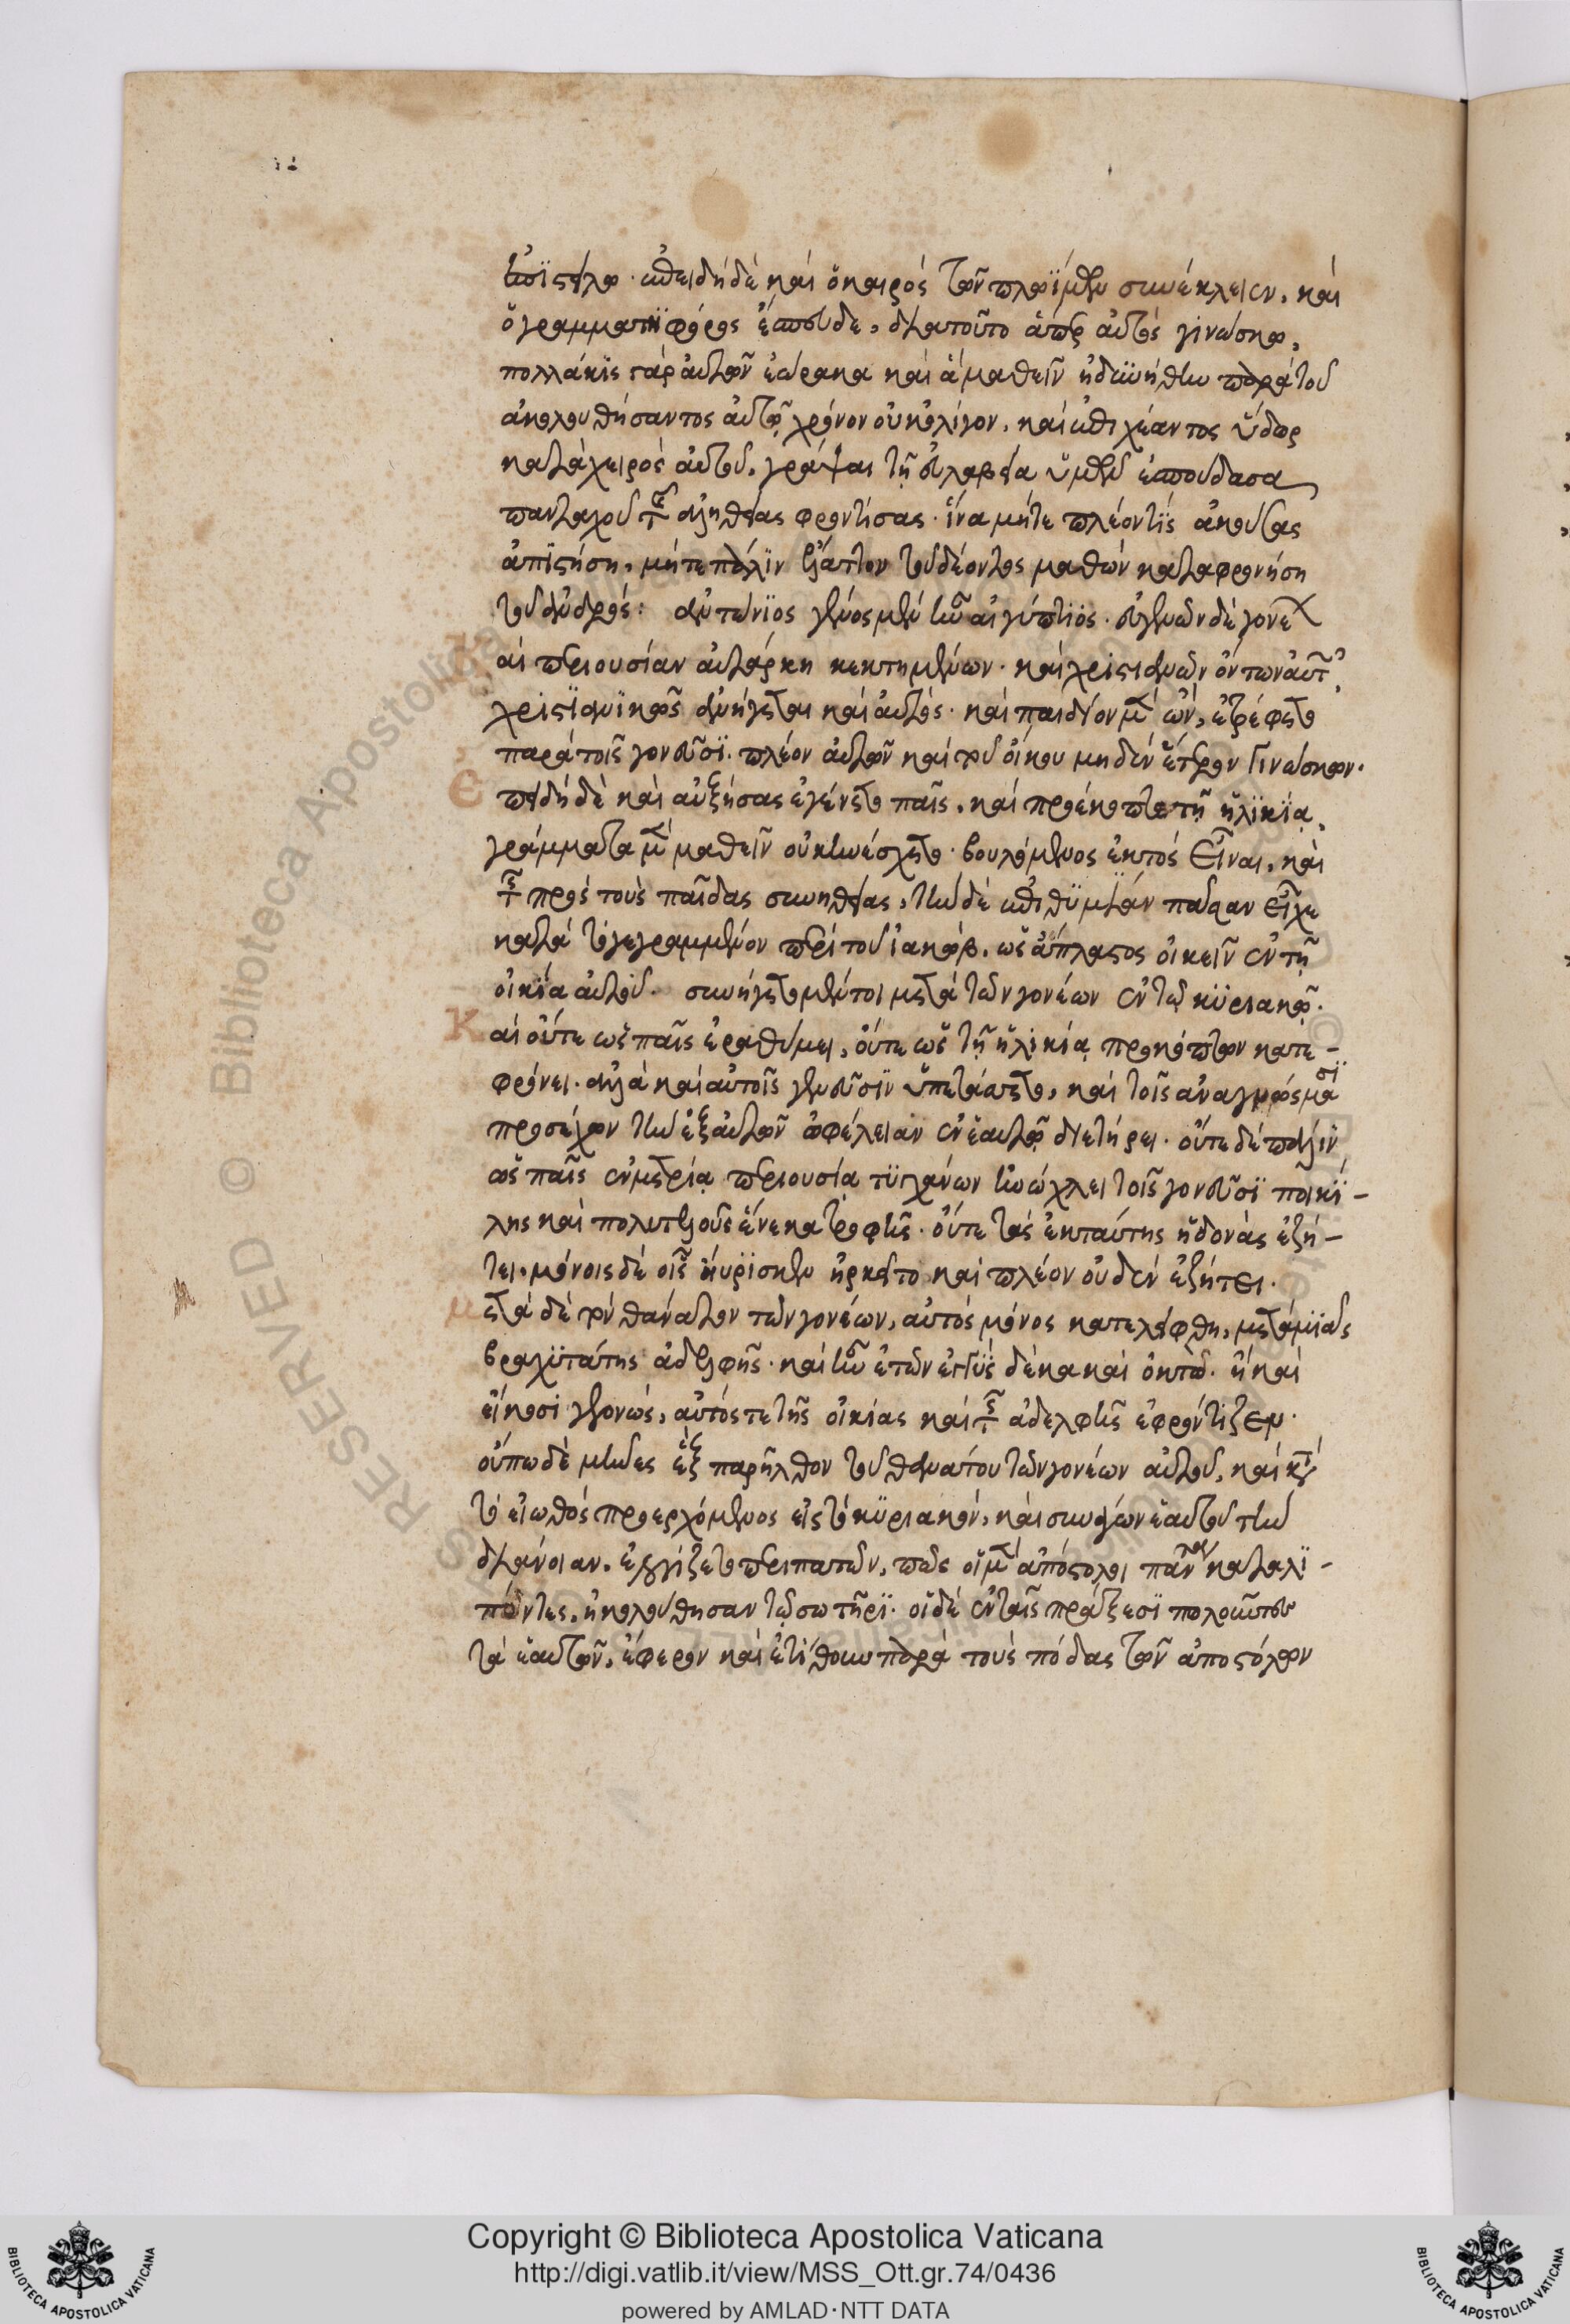 ἐπιστείλω· ἐπειδὴ δὲ καὶ ὁ καιρὸς τῶν πλωΐμων συνέκλειεν, καὶ
ὁ γραμματηφόρος ἔσπευδε, διατοῦτο ἅπερ αὐτὸς γινώσκω,
πολλάκις γὰρ αὐτὸν ἑώρακα καὶ ἃ μαθεῖν ἠδυνήθην παρὰ τοῦ
ἀκολουθήσαντος αὐτῷ χρόνον οὐκ ὀλίγον, καὶ ἐπιχέαντος ὕδωρ
κατὰ χειρὸς αὐτοῦ, γράψαι τῇ εὐλαβεία ὑμῶν ἐσπούδασα
πανταχοῦ τῆς ἀληθείας φροντίσας· ἵνα μήτε πλέον τὶς ἀκούσας
ἀπιστήση, μήτε πάλιν ἔλαττον τοῦ δέοντος μαθὼν καταφρονήση
τοῦ ἀνδρός: ἀντώνιος γένος μὲν ἦν αἰγύπτιος· εὐγενῶν δὲ γονέων
αἱ περιουσίαν αὐτάρκη κεκτημένων· καὶ χριστιανῶν ὄντων αὐτῶν,
χριστιανικῶς ἀνήγετο καὶ αὐτός· καὶ παιδίον μὲν ὤν, ἐτρέφετο
παρὰ τοῖς γονεῦσι· πλέον αὐτῶν καὶ τοῦ οἴκου μηδὲν ἕτερον γινώσκων·
Ἐπειδὴ δὲ καὶ αὐξήσας ἐγένετο παῖς, καὶ προέκοπτε τῇ ἡλικία,
γράμματα μὲν μαθεῖν οὐκ ἠνέσχετο· βουλόμενος ἐκτὸς εἶναι, καὶ
τῆς πρὸς τοὺς παῖδας συνηθείας, τὴν δὲ ἐπιθυμίαν πᾶσαν εἶχε
κατὰ τὸ γεγραμμένον περὶ τοῦ ἰακώβ, ὡς ἄπλαστος οἰκεῖν ἐν τῇ
οἰκία αὐτοῦ· συνήγετο μέντοι μετὰ τῶν γονέων ἐν τῷ κυριακῷ·
Καὶ οὔτε ὡς παῖς ἐραθύμει, οὔτε ὡς τῇ ἡλικίᾳ προκόπτων κατε-
φρόνει· ἀλλὰ καὶ αὐτοῖς γονεῦσιν ὑπετάσσετο, καὶ τοῖς ἀναγνώσμασι
προσέχων τὴν ἐξ αὐτῶν ὠφέλειαν ἐν ἑαυτῷ διετήρει· οὔτε δὲ πάλιν
ὡς παῖς ἐν μετρίᾳ περιουσίᾳ τυγχάνων ἠνώχλει τοῖς γονεῦσι ποικί-
λης καὶ πολυτελοῦς ἕνεκα τροφῆς· οὔτε τὰς ἐκ ταύτης ἡδονὰς ἐζή-
τει· μόνοις δὲ οἷς ηὕρισκεν ἠρκεῖτο καὶ πλέον οὐδὲν ἐζήτει·
μετὰ δὲ τὸν θάνατον τῶν γονέων, αὐτὸς μόνος κατελείφθη, μετὰ μιᾶς
βραχυτάτης ἀδελφῆς· καὶ ἦν ἐτῶν ἐγγὺς δέκα καὶ ὀκτώ· ἢ καὶ
εἴκοσι γεγονώς, αὐτός τε τῆς οἰκίας καὶ τῆς ἀδελφῆς ἐφρόντιζεν·
οὔπω δὲ μῆνες ἓξ παρῆλθον τοῦ θανάτου τῶν γονέων αὐτοῦ, καὶ κατὰ
τὸ εἰωθὸς προερχόμενος εἰς τὸ κυριακόν, καὶ συνάγων ἑαυτοῦ τὴν
διάνοιαν, ἐλογίζετο περιπατῶν, πῶς οἱ μὲν ἀπόστολοι πάντα καταλι-
πόντες, ἠκολούθησαν τῷ σωτῆρι· οἱ δὲ ἐν ταῖς πράξεσι πωλοῦντες
τὰ ἑαυτῶν, ἔφερον καὶ ἐτίθουν παρὰ τοὺς πόδας τῶν ἀποστόλων
RESERVED © Biblioteca Apostolica
Copyright © Biblioteca Apostolica Vaticana
http://digi.vatlib.it/view/MSS_Ott.gr.74/0436
powered by AMLAD·NTT DATA
BIBLIOTECA APOSTOLICA VATICANA
BIBLIOTECA APOSTOLICA VATICANA